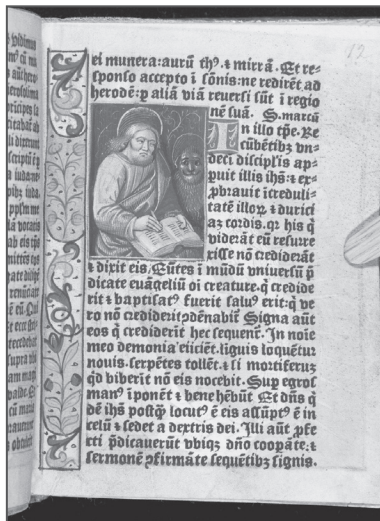 ei munera: aurū thꝰ. ⁊ mirrā. Et re-
sponso accepto ī sōnis: ne redirēt ad
herodē: ꝑ aliā viā reuersi sūt ī regio
nē suā. S. marcū
In illo tꝑe. Re
cūbētibꝫ vn-
deci discipl'is ap-
puit illis ihs̄: ⁊ ex-
ꝓbrauit īcreduli-
tatē illoꝝ ⁊ durici
aꝫ cordis. qꝛ his q̇
viderāt eū resurre
xisse nō crediderāt
⁊ dixit eis. Eūtes ī mūdū vniuersū p̄
dicate euāgeliū oī creature. q̇ credide
rit ⁊ baptisatꝰ fuerit saluꝰ erit: q̇ ve
ro nō crediderit: ↄdēnabit̄ Signa aūt
eos q̇ crediderīt hec sequēnt̄. In noīe
meo demonia eiiciēt. līguis loquētur
nouis. serpētes tollēt. ⁊ si mortiferuꝫ
qd̄ biberīt nō eis nocebit. Suꝑ egros
manꝰ īponēt ⁊ bene hēbūt Et dn̄s q̇
dē ihs̄ postꝙ̄ locutꝰ ē eis assūptꝰ ē in
celū ⁊ sedet a dextris dei. Illi aūt ꝓfe
cti p̄dicauerūt vbiqꝫ dn̄o cooꝑāte. ⁊
sermonē ↄfirmāte sequētibꝫ signis.